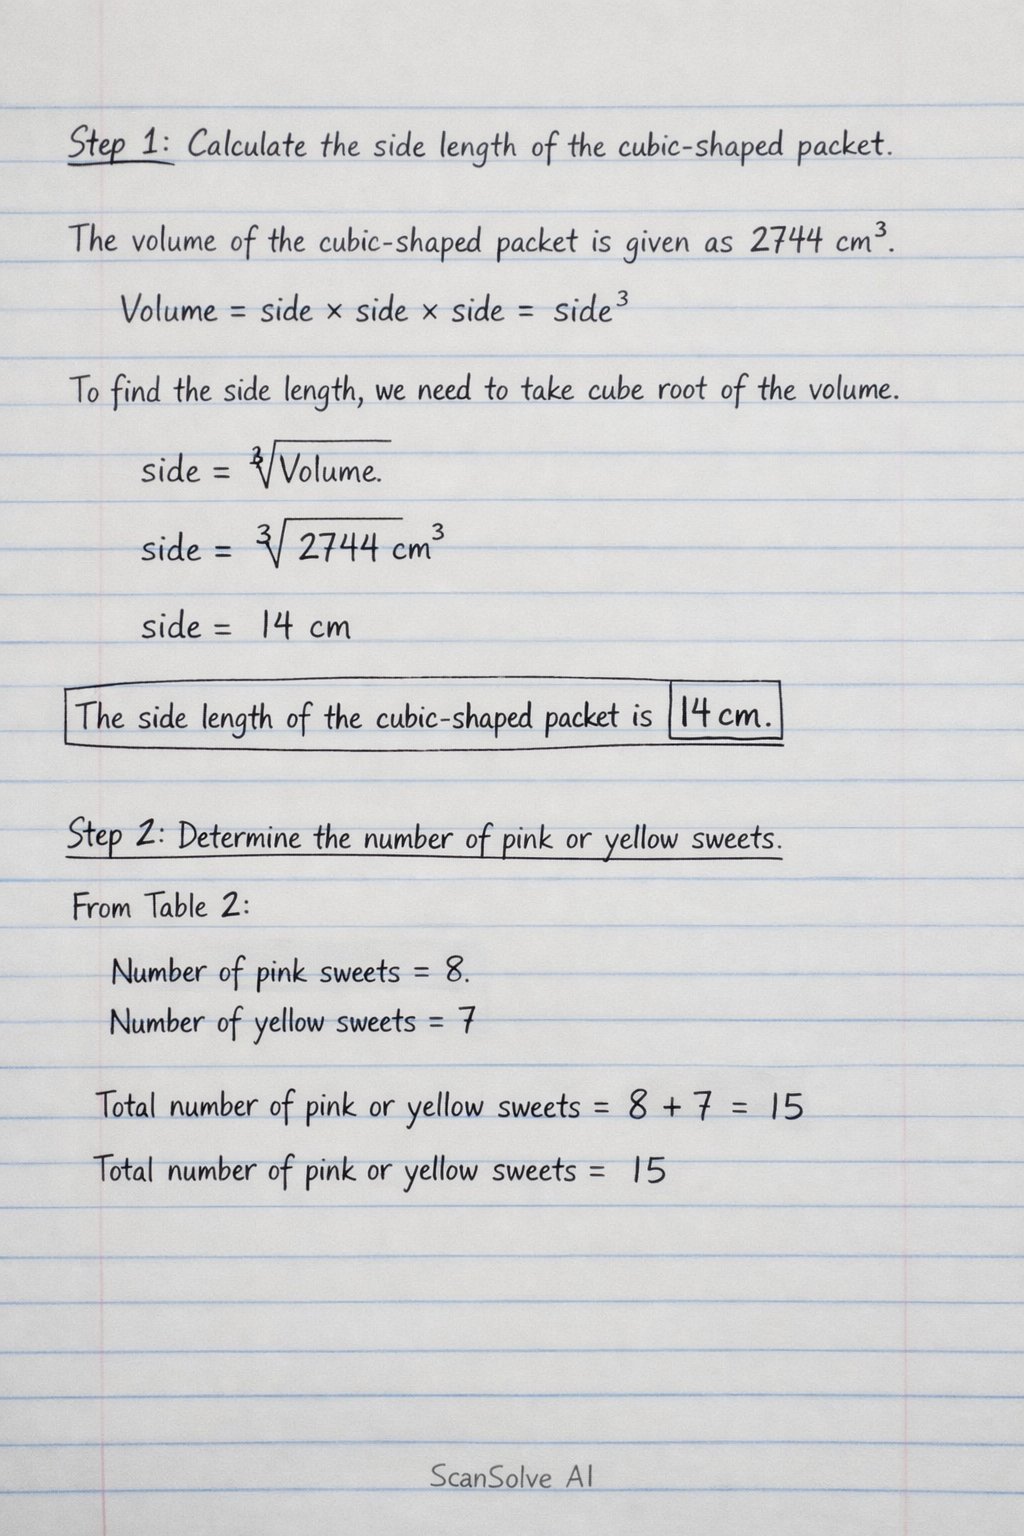 Step 1: Calculate the side length of the cubic-shaped packet.
The volume of the cubic-shaped packet is given as 2744 cm³.
Volume = side × side × side = side³
To find the side length, we need to take cube root of the volume.
side = ∛Volume.
side = ∛2744 cm³
side = 14 cm
The side length of the cubic-shaped packet is 14 cm.
Step 2: Determine the number of pink or yellow sweets.
From Table 2:
Number of pink sweets = 8.
Number of yellow sweets = 7
Total number of pink or yellow sweets = 8 + 7 = 15
Total number of pink or yellow sweets = 15
ScanSolve AI